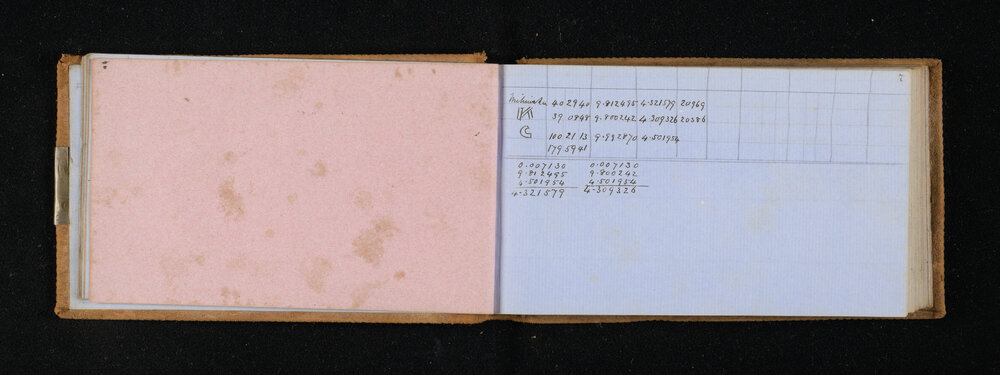 40 29 40 9.812495 4.321579 20969
K 39 0848 9.800242 4.309326 20386
C 100 21 13 9.992870 4.501954
179 59 41
0.007130 0.007130
9.812495 9.800242
4.501954 4.501954
4.321579 4.309326
7